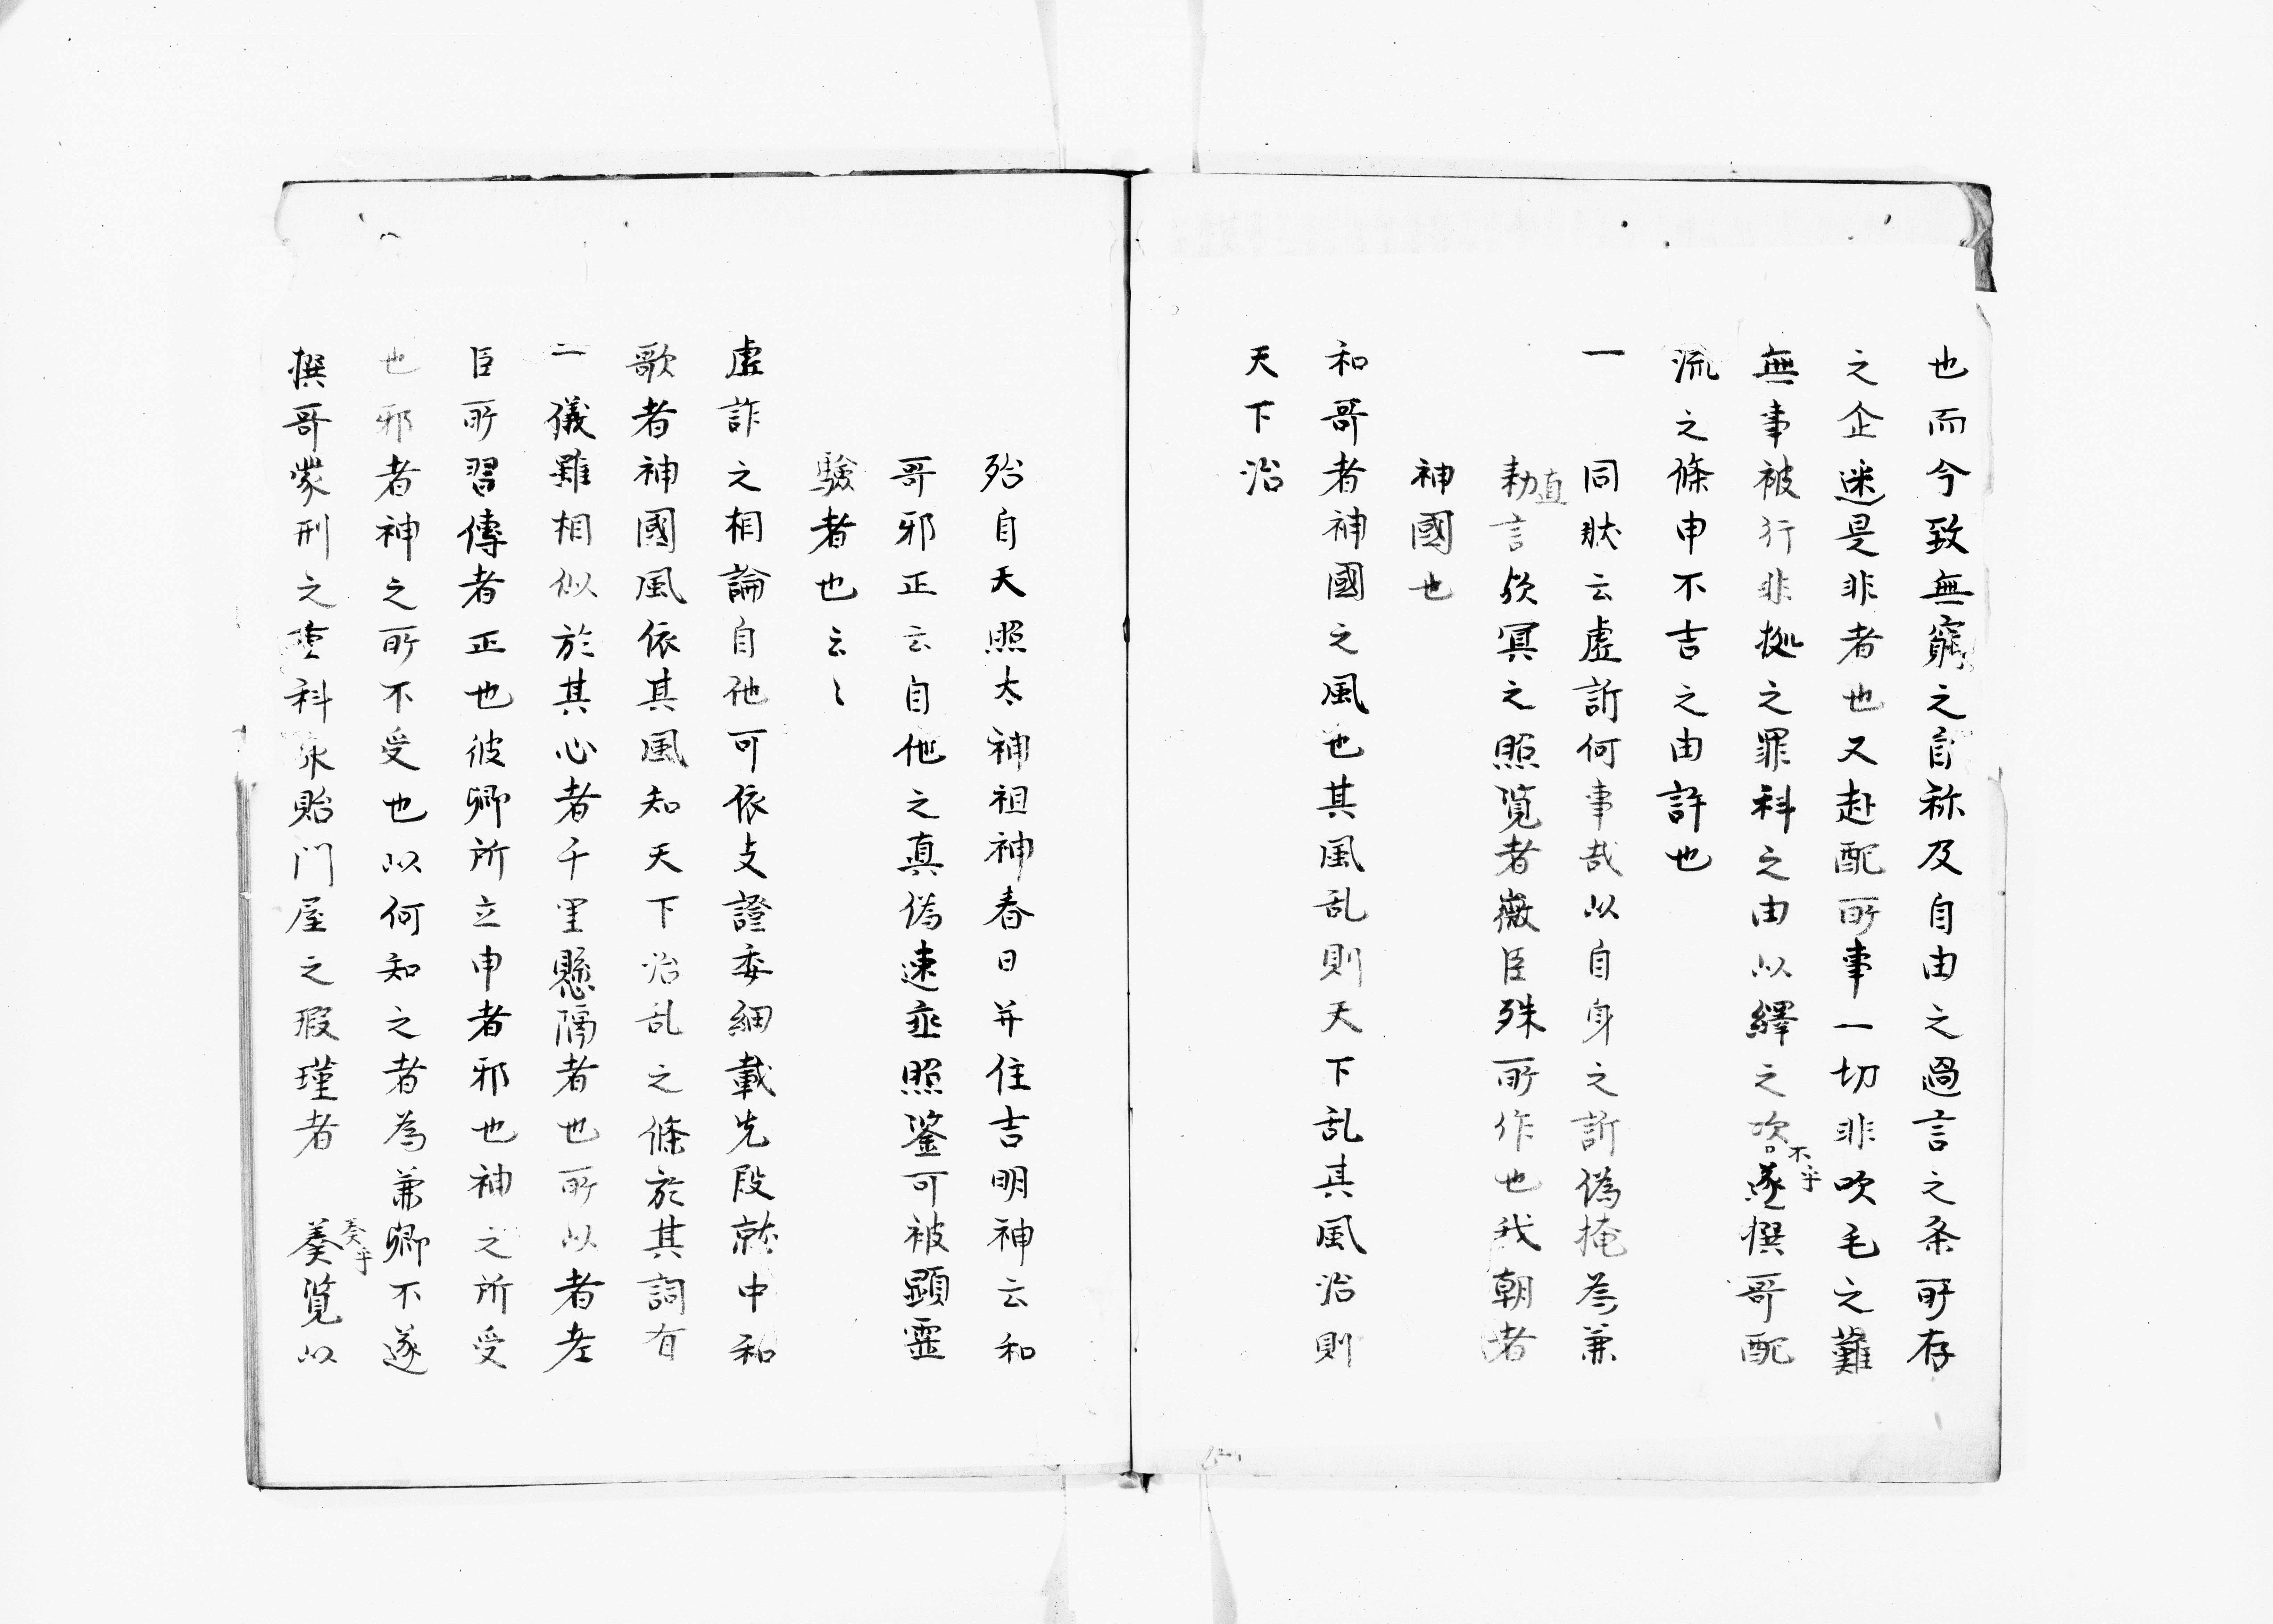 也而今致無窮之自称及自由之過言之条所存
之企迷是非者也又赴配所事一切非吹毛之難
無事被行非拠之罪科之由以繹之次遂撰哥配
不乎
流之條申不吉之由許也
一 同状云虚訴何事哉以自身之訴偽掩為兼
勅言欤冥之照覧者微臣殊所作也我朝者
直
神國也
和哥者神國之風也其風乱則天下乱其風治則
天下治
殆自天照太神祖神春日并住吉明神云和
哥邪正云自他之真偽速垂照鑒可被顕霊
験者也云々
虚詐之相論自他可依支證委細載先段就中和
歌者神國風依其風知天下治乱之條於其詞有
二儀雖相似於其心者千里懸隔者也所以者老
臣所習傳者正也彼卿所立申者邪也神之所受
也邪者神之所不受也以何知之者為兼卿不遂
撰哥蒙刑之重科永貽門屋之瑕瑾者 奏覧以
奏乎